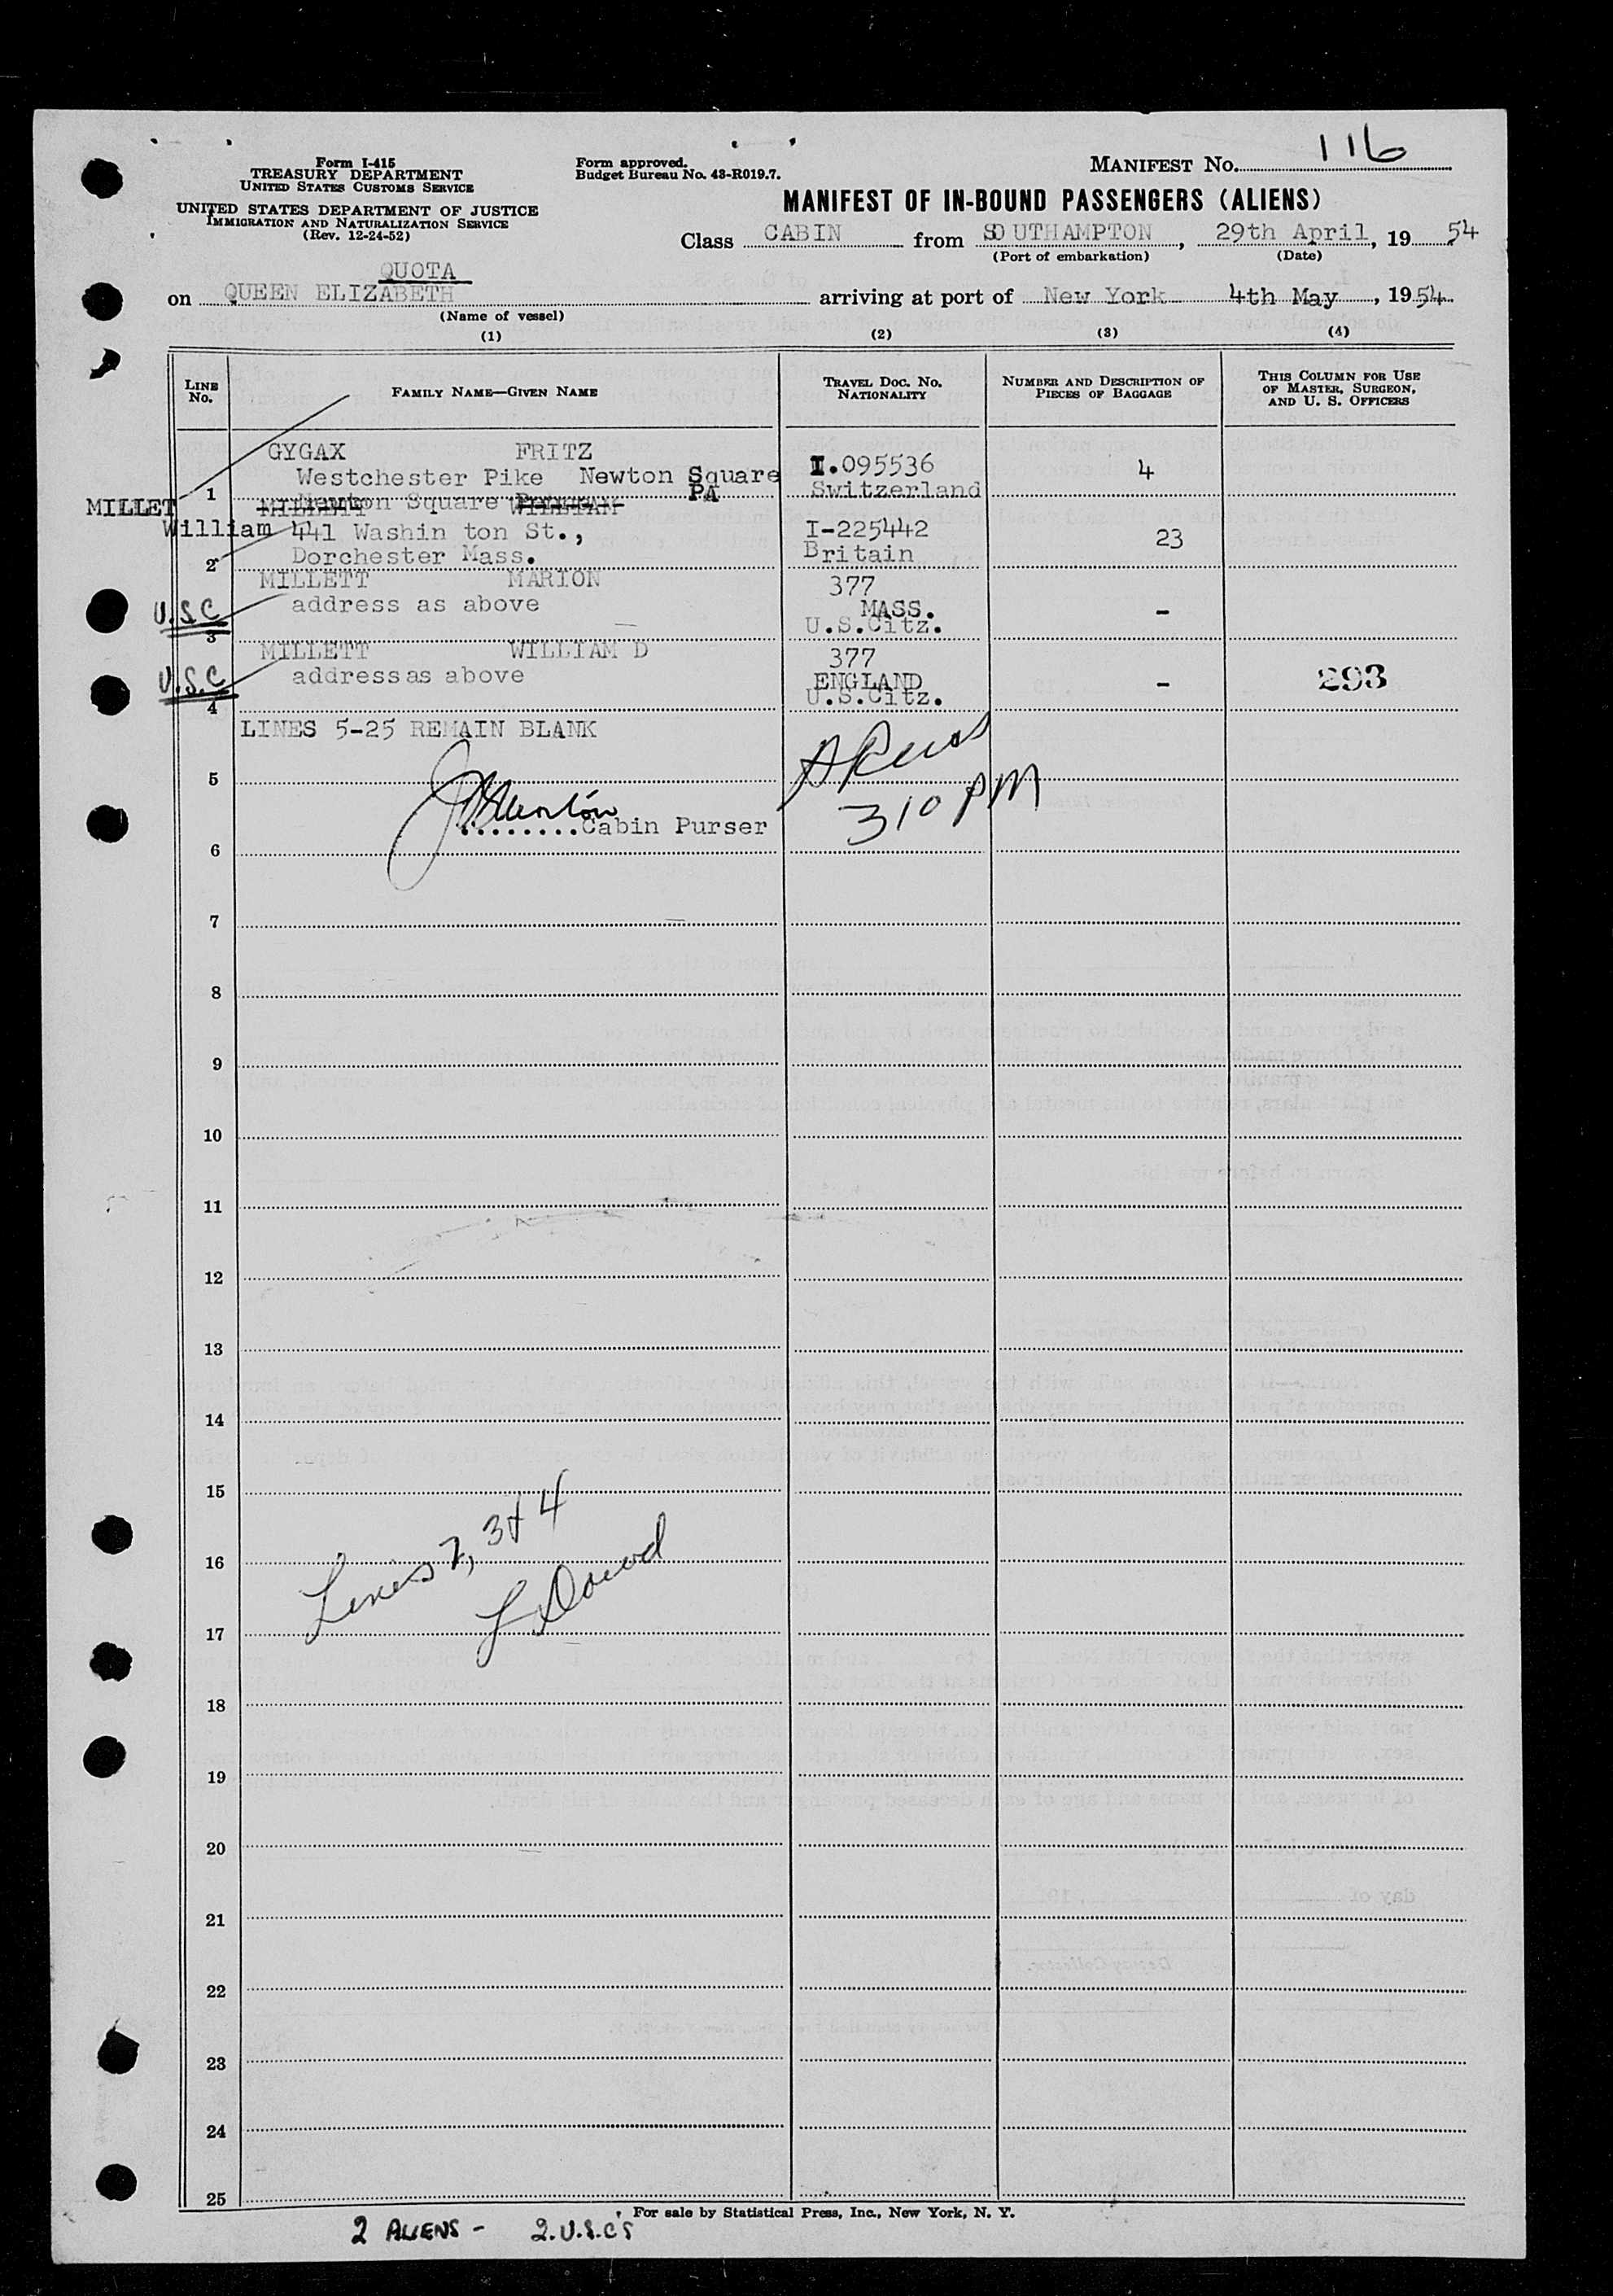 Form I-415
TREASURY DEPARTMENT
UNITED STATES CUSTOMS SERVICE
UNITED STATES DEPARTMENT OF JUSTICE
IMMIGRATION AND NATURALIZATION SERVICE
(Rev. 12-24-52)
Form approved.
Budget Bureau No. 43-R019.7.
MANIFEST No. 116
MANIFEST OF IN-BOUND PASSENGERS (ALIENS)
Class CABIN from SOUTHAMPTON, 29th April, 19 54
(Port of embarkation) (Date)
QUOTA
on QUEEN ELIZABETH arriving at port of New York 4th May, 1954
(Name of vessel)
(1) (2) (3) (4)
LINE No. FAMILY NAME—GIVEN NAME TRAVEL DOC. NO. NATIONALITY NUMBER AND DESCRIPTION OF PIECES OF BAGGAGE THIS COLUMN FOR USE OF MASTER, SURGEON, AND U. S. OFFICERS
GYGAX FRITZ I.095536 4
Westchester Pike Newton Square
1 PA Switzerland
MILLET Newton Square
William 441 Washin ton St., I-225442 23
2 Dorchester Mass. Britain
MILLETT MARION 377
U.S.C address as above MASS. -
3 U.S.Citz.
MILLETT WILLIAM D 377
U.S.C address as above ENGLAND - 293
4 U.S.Citz.
LINES 5-25 REMAIN BLANK
5
310 PM
........Cabin Purser
6
7
8
9
10
11
12
13
14
15
Lines 2, 3 & 4
16
17
18
19
20
21
22
23
24
25
For sale by Statistical Press, Inc., New York, N. Y.
2 ALIENS - 2.U.S.C'S